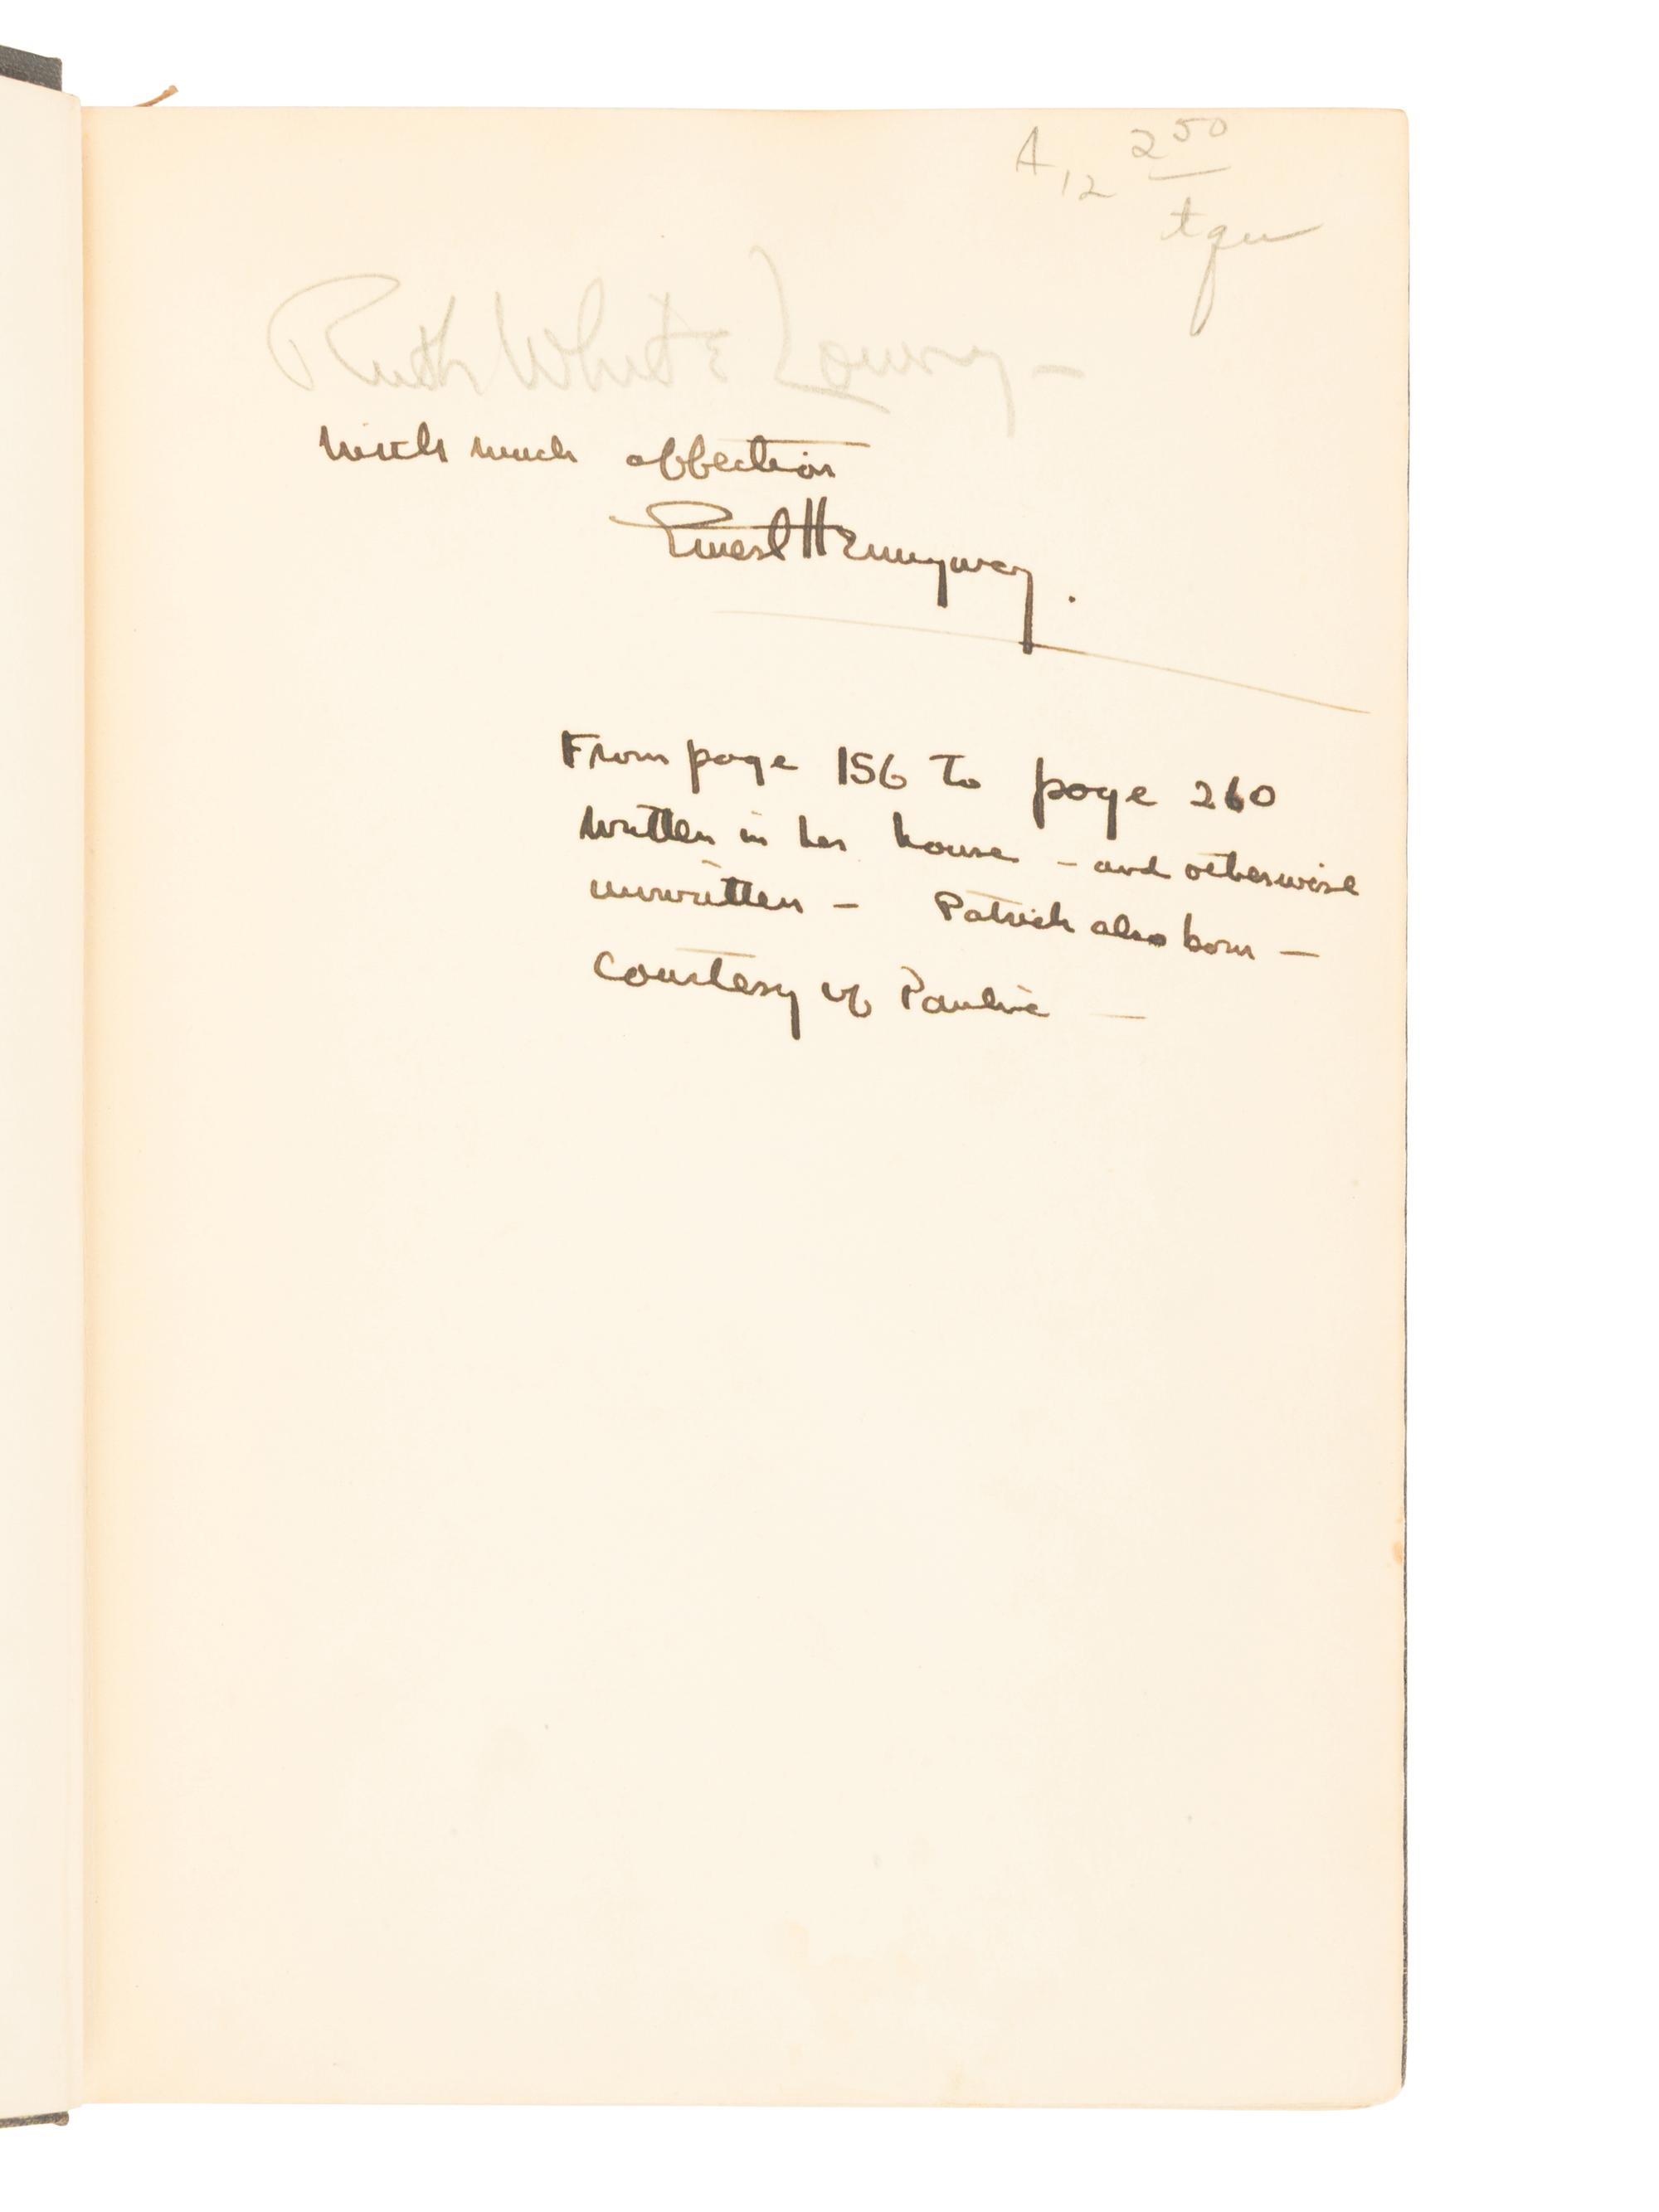 A 12 2 50
Ruth White Lowry –
with much affection
Ernest Hemingway.
From page 156 To page 260
written in her house – and otherwise
unwritten – Patrick also born –
Courtesy of Pauline –